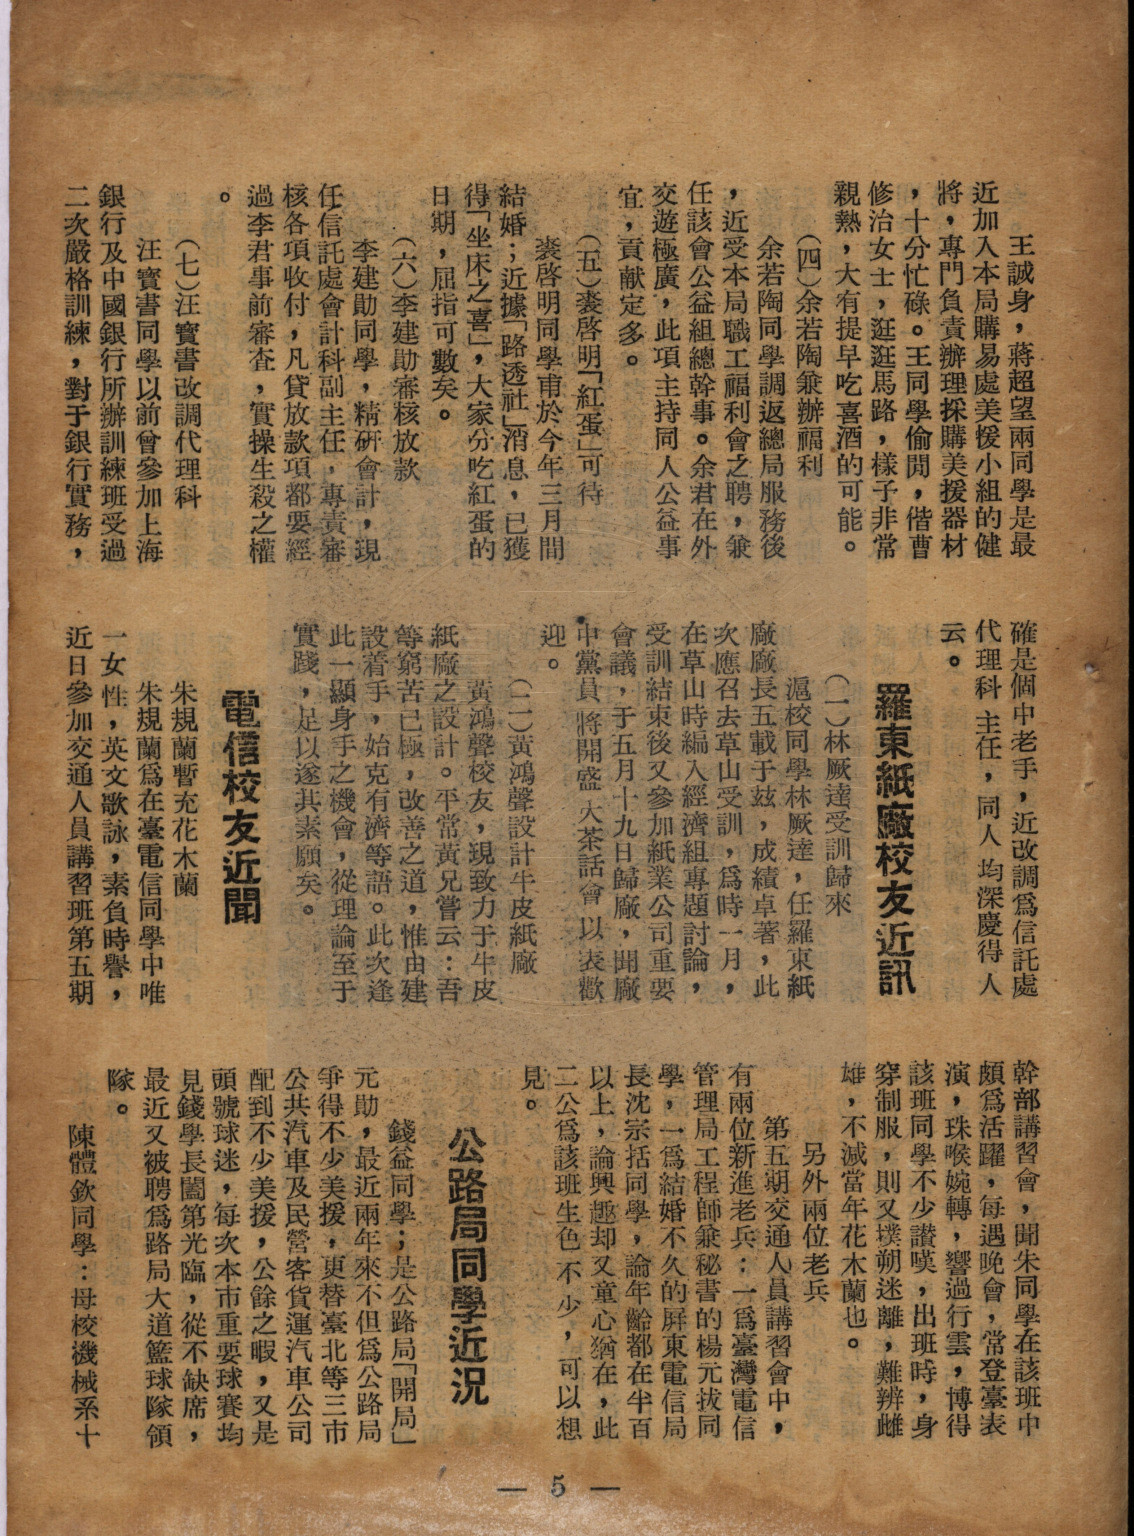 王誠身，蔣超望兩同學是最
近加入本局購易處美援小組的健
將，專門負責辦理採購美援器材
，十分忙碌。王同學偷閒，偕曹
修治女士，逛逛馬路，樣子非常
親熱，大有提早吃喜酒的可能。
（四）余若陶兼辦福利
余若陶同學調返總局服務後
，近受本局職工福利會之聘，兼
任該會公益組總幹事。余君在外
交遊極廣，此項主持同人公益事
宜，貢献定多。
（五）裘啓明「紅蛋」可待
裘啓明同學甫於今年三月間
結婚；近據「路透社」消息，已獲
得「坐床之喜」，大家分吃紅蛋的
日期，屈指可數矣。
（六）李建勛審核放款
李建勛同學，精研會計，現
任信託處會計科副主任，專責審
核各項收付，凡貸放款項都要經
過李君事前審查，實操生殺之權
。
（七）汪寶書改調代理科
汪寶書同學以前曾參加上海
銀行及中國銀行所辦訓練班受過
二次嚴格訓練，對于銀行實務，
確是個中老手，近改調爲信託處
代理科主任，同人均深慶得人
云。
羅東紙廠校友近訊
（一）林厥達受訓歸來
滬校同學林厥達，任羅東紙
廠廠長五載于茲，成績卓著，此
次應召去草山受訓，爲時一月，
在草山時編入經濟組專題討論，
受訓結束後又參加紙業公司重要
會議，于五月十九日歸廠，聞廠
中黨員將開盛大茶話會以表歡
迎。
（二）黃鴻聲設計牛皮紙廠
黃鴻聲校友，現致力于牛皮
紙廠之設計。平常黃兄嘗云：吾
等窮苦已極，改善之道，惟由建
設着手，始克有濟等語。此次逢
此一顯身手之機會，從理論至于
實踐，足以遂其素願矣。
電信校友近聞
朱規蘭暫充花木蘭
朱規蘭爲在臺電信同學中唯
一女性，英文歌詠，素負時譽，
近日參加交通人員講習班第五期
幹部講習會，聞朱同學在該班中
頗爲活躍，每遇晚會，常登臺表
演，珠喉婉轉，響過行雲，博得
該班同學不少讃嘆，出班時，身
穿制服，則又撲朔迷離，難辨雌
雄，不減當年花木蘭也。
另外兩位老兵
第五期交通人員講習會中，
有兩位新進老兵：一爲臺灣電信
管理局工程師兼秘書的楊元拔同
學，一爲結婚不久的屏東電信局
長沈宗括同學，論年齡都在半百
以上，論興趣却又童心猶在，此
二公爲該班生色不少，可以想
見。
公路局同學近況
錢益同學；是公路局「開局」
元勛，最近兩年來不但爲公路局
爭得不少美援，更替臺北等三市
公共汽車及民營客貨運汽車公司
配到不少美援，公餘之暇，又是
頭號球迷，每次本市重要球賽均
見錢學長闔第光臨，從不缺席，
最近又被聘爲路局大道籃球隊領
隊。
陳體欽同學：母校機械系十
— 5 —